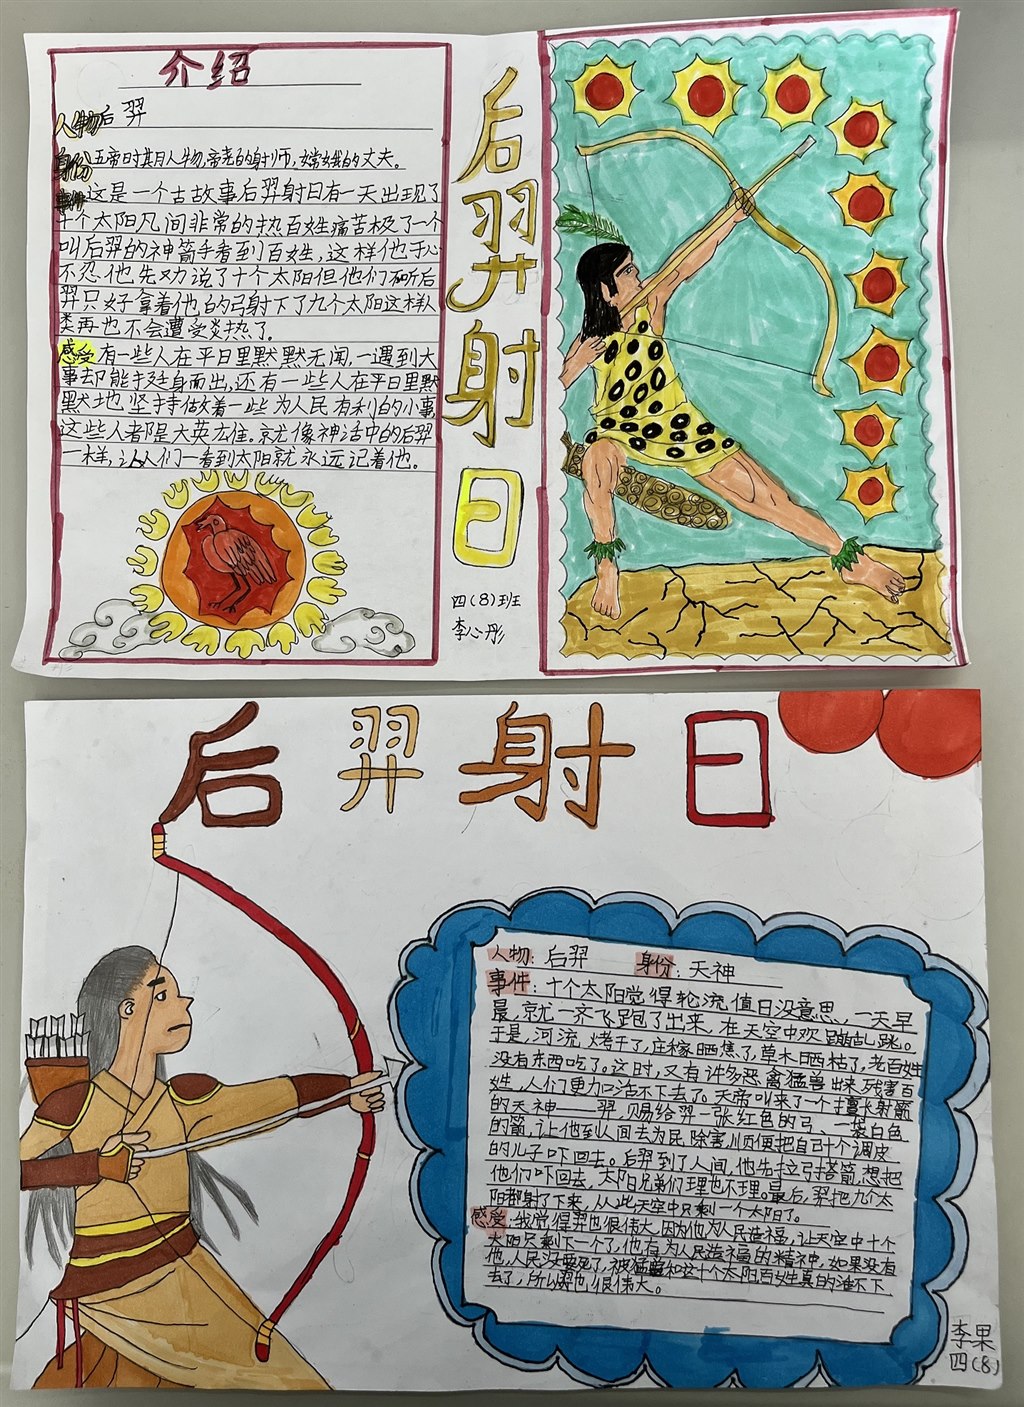 介绍
人物 后羿
身份 五帝时期人物,帝尧的射师,嫦娥的丈夫。
事件 这是一个古故事后羿射日有一天出现了
十个太阳凡间非常的热百姓痛苦极了一个
叫后羿的神箭手看到百姓,这样他于心
不忍他先劝说了十个太阳但他们不听后
羿只好拿着他的弓射下了九个太阳这样人
类再也不会遭受炎热了。
感受 有一些人在平日里默默无闻,一遇到大
事却能挺身而出,还有一些人在平日里默
默地坚持做着一些为人民有利的小事
这些人都是大英雄。就像神话中的后羿
一样,让人们一看到太阳就永远记着他。
后羿射日
四(8)班
李心彤
后羿射日
人物:后羿 身份:天神
事件:十个太阳觉得轮流值日没意思,一天早
晨,就一齐飞跑了出来,在天空中欢蹦乱跳。
于是,河流烤干了,庄稼晒焦了,草木晒枯了,老百姓
没有东西吃了。这时,又有许多恶禽猛兽出来残害百
姓,人们更加活不下去了。天帝叫来了一个擅长射箭
的天神——羿,赐给羿一张红色的弓、一袋白色
的箭,让他到人间去为民除害,顺便把自己十个调皮
的儿子吓回去。后羿到了人间,他先拉弓搭箭,想把
他们吓回去,太阳兄弟们理也不理。最后,羿把九个太
阳都射了下来,从此天空中只剩一个太阳了。
感受:我觉得羿也很伟大,因为他为人民造福,让天空中十个
太阳只剩下一个了,他有为人民造福的精神,如果没有
他,人民没要死了,被猛兽和这十个太阳百姓真的活不下
去了,所以羿也很伟大。
李果
四(8)